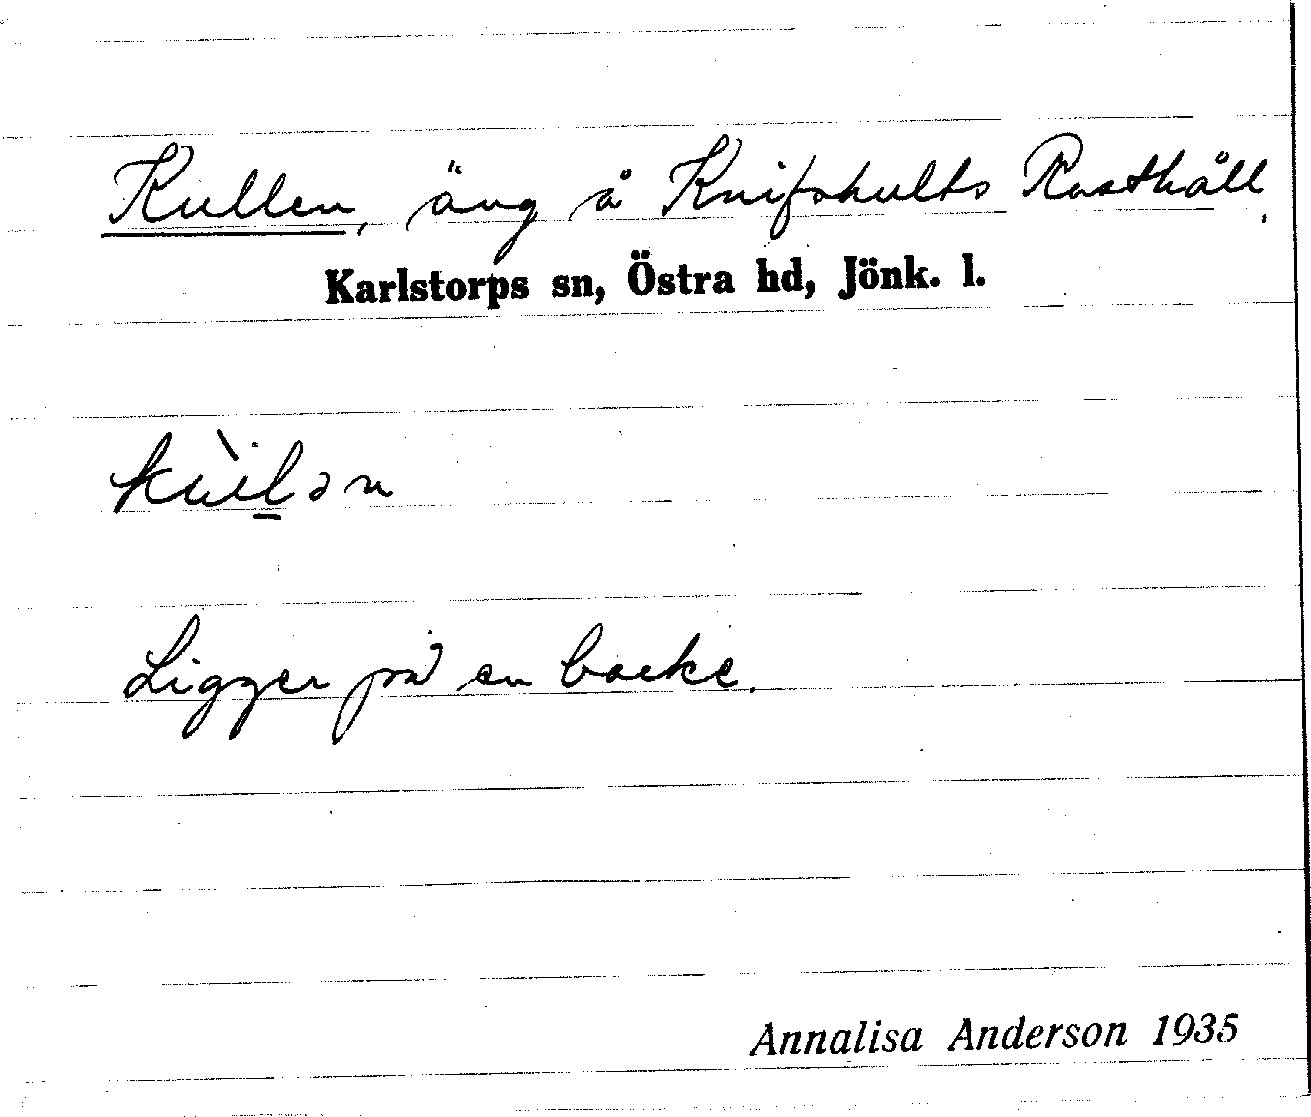 Kullen, äng å Knifshults Rusthåll.
Karlstorps sn, Östra hd, Jönk. l.
Ligger på en backe.
Annalisa Anderson 1935